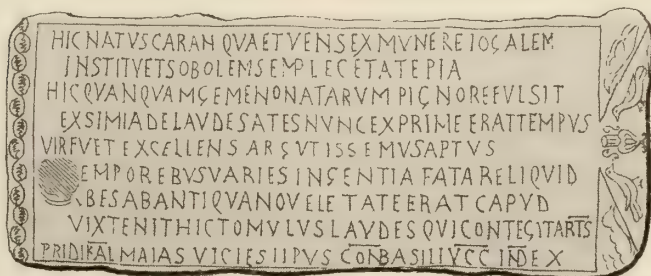 HICNATVSCARANQVAETVENSEXMVNEREIOGALEM
INSTITVETSOBOLEMSEMPLECETATEPIA
HICQVANQVAMGEMENONATARVMPIGNOREFVLSIT
EXSIMIADELAVDESATESNVNCEXPRIMEERATTEMPVS
VIRFVETEXCELLENSARGVTISSEMVSAPTVS
EMPOREBVSVARIESINGENTIAFATARELIQVID
BESABANTIQVANOVELETATEERATCAPVD
VIXTENITHICTOMVLVSLAVDESQVICONTEGITARTS
PRIDIKALMAIAS VICIES IIPVS CONBASILIVCC INDEX